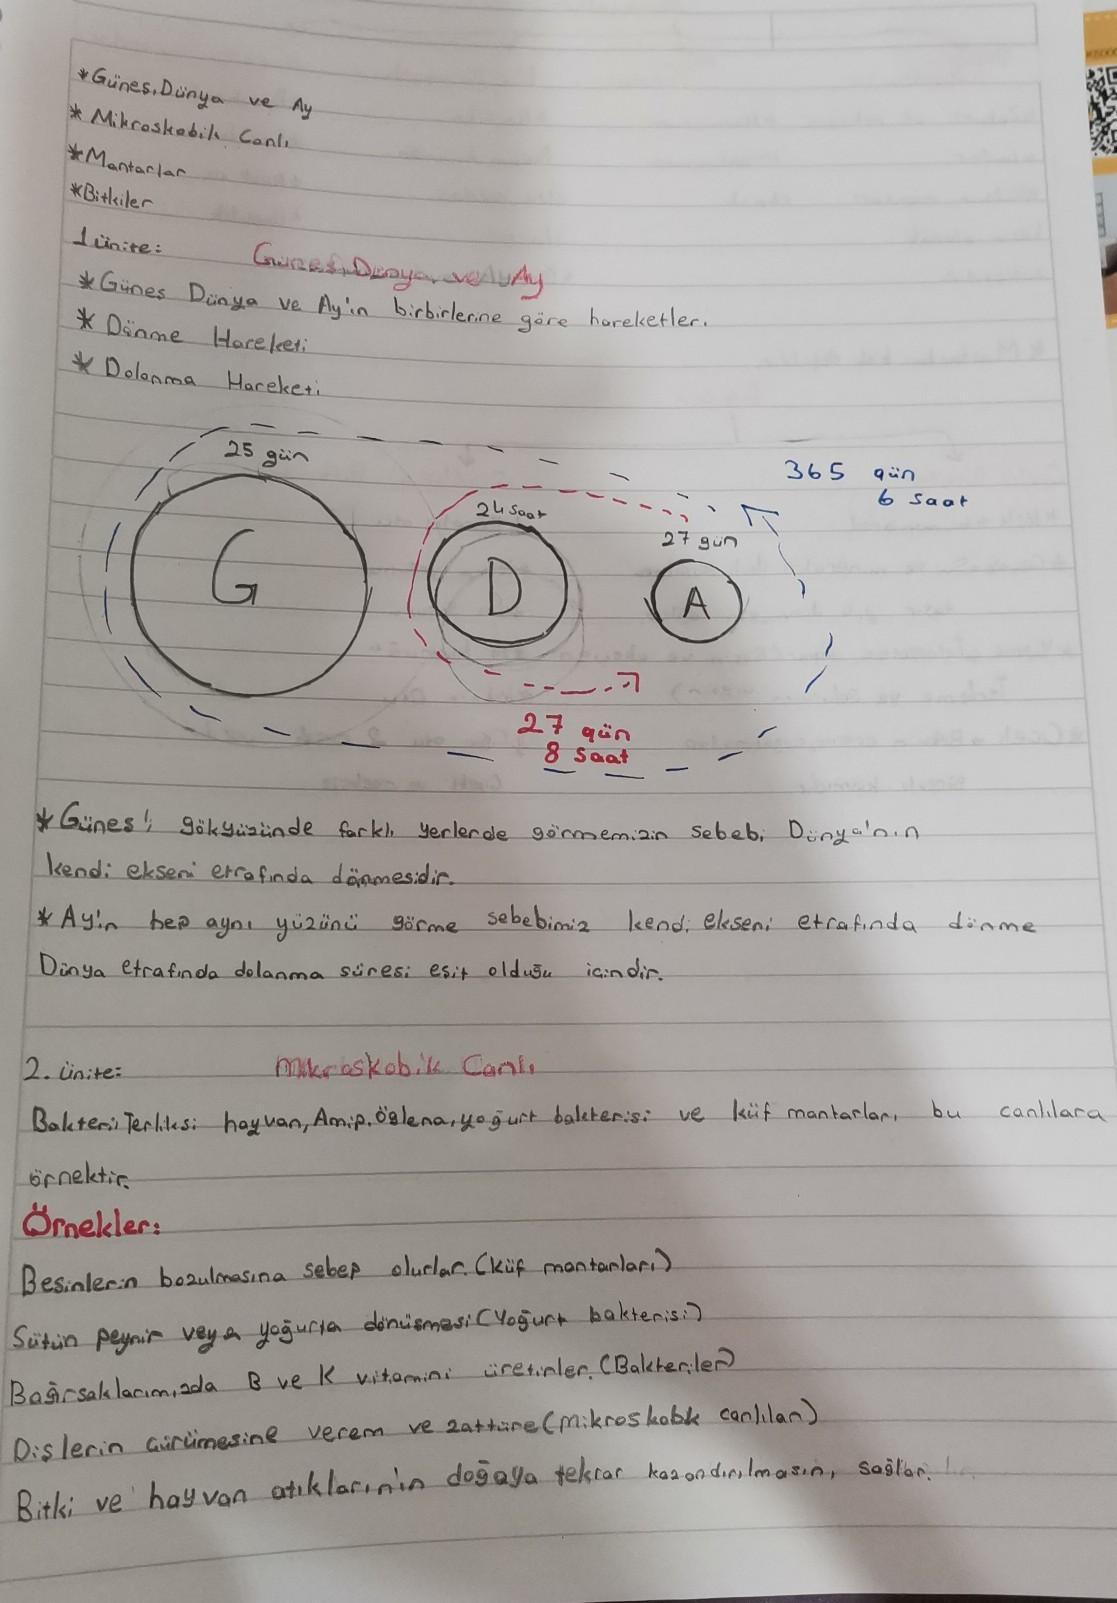 *Güneş, Dünya ve Ay
* Mikroskobik Canlı
*Mantarlar
*Bitkiler
1 ünite: Güneş, Dünya, ve Ay
*Güneş Dünya ve Ay'ın birbirlerine göre hareketler.
* Dönme Hareketi
* Dolanma Hareketi
25 gün
365 gün
6 saat
24 saat
27 gün
G
D
A
27 gün
8 saat
*Güneş'i gökyüzünde farklı yerlerde görmemizin sebebi Dünya'nın
kendi ekseni etrafında dönmesidir.
*Ay'ın hep aynı yüzünü görme sebebimiz kendi ekseni etrafında dönme
Dünya etrafında dolanma süresi eşit olduğu içindir.
2. ünite: Mikroskobik Canlı
Bakteri, Terliksi hayvan, Amip, Öglena, yoğurt bakterisi ve küf mantarları bu canlılara
örnektir.
Örnekler:
Besinlerin bozulmasına sebep olurlar. (Küf mantarları)
Sütün peynir veya yoğurta dönüşmesi (Yoğurt bakterisi)
Bağırsaklarımızda B ve K vitamini üretirler. (Bakteriler)
Dişlerin çürümesine verem ve zattüre (mikroskobik canlıları)
Bitki ve hayvan atıklarının'in doğaya tekrar kazandırılmasını sağlar.